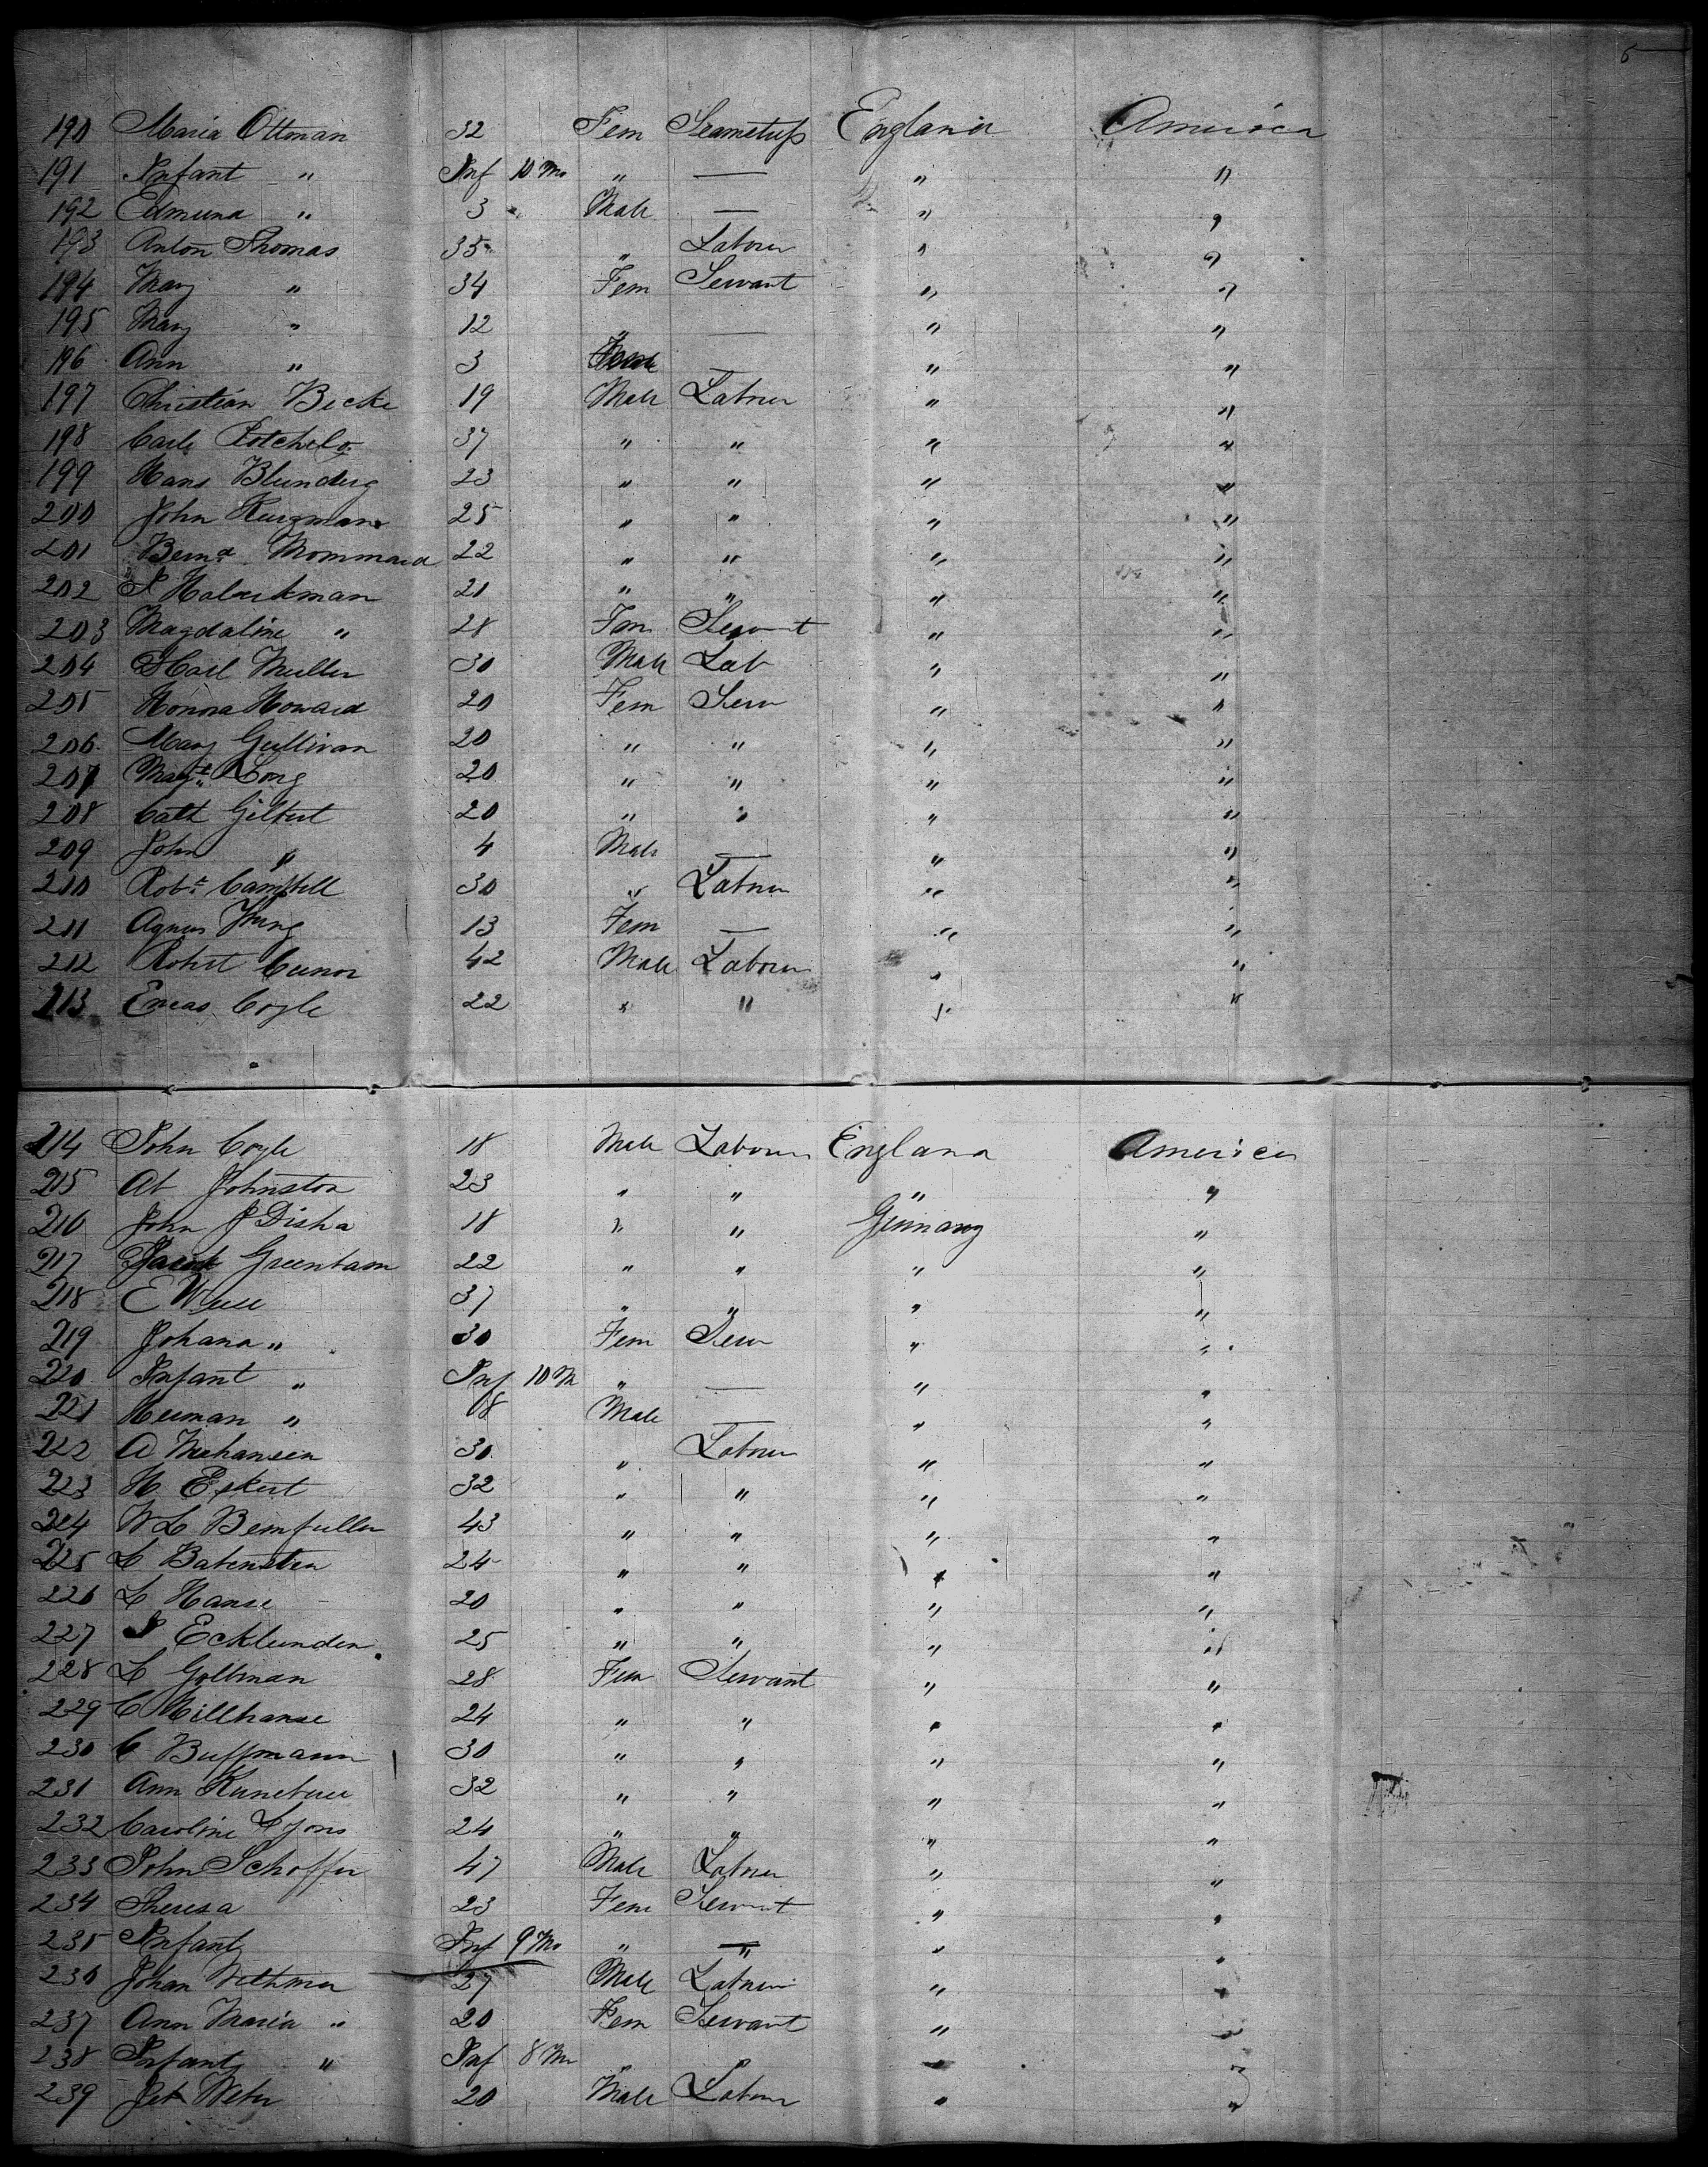 6
190 Maria Ottman 32 Fem England America
191 Infant " Inf 10 Mo " — " "
192 Edmund " 3 Male — " "
193 Anton Thomas 35 " Labour " "
194 Mary " 34 Fem Servant " "
195 Mary " 12 " — " "
196 Ann " 3 — " "
197 Christian Becke 19 Male Labour " "
198 Carl 37 " " " "
199 Hans Blunderg 23 " " " "
200 John 25 " " " "
201 Bernd Mommard 22 " " " "
202 21 " " " "
203 Magdaline " 28 Fem Servant " "
204 Muller 30 Male Lab " "
205 Honora Howard 20 Fem Serv " "
206 Mary Gullivan 20 " " " "
207 Margt Long 20 " " " "
208 Cath Gilbert 20 " " " "
209 John " 4 Male — " "
210 Robt Campbell 30 " Labour " "
211 Agnes 13 Fem — " "
212 Robert 42 Male Labour " "
213 Eneas Coyle 22 " " " "
214 John Coyle 18 Male Labour England America
215 At Johnston 23 " " " "
216 John J Disha 18 " " Germany "
217 Jacob Greenbam 22 " " " "
218 E Wiese 37 " " " "
219 Johana " 30 Fem Serv " "
220 Infant " Inf 10 M " — " "
221 Herman " 8 Male — " "
222 A 30 " Labour " "
223 H Eckert 32 " " " "
224 W L Bemfuller 43 " " " "
225 L Batenstein 24 " " " "
226 L Hanse 20 " " " "
227 Ecklunden 25 " " " "
228 L Gollman 28 Fem Servant " "
229 C Millhanse 24 " " " "
230 C Buffmann 30 " " " "
231 Ann 32 " " " "
232 Caroline Lyons 24 " " " "
233 John Schoffer 47 Male Labour " "
234 Theresa 23 Fem Servant " "
235 Infant Inf 9 Mo " — " "
236 Johan 27 Male Labour " "
237 Ann Maria " 20 Fem Servant " "
238 Infant " Inf 8 Mo " " " "
239 20 Male Labour " "